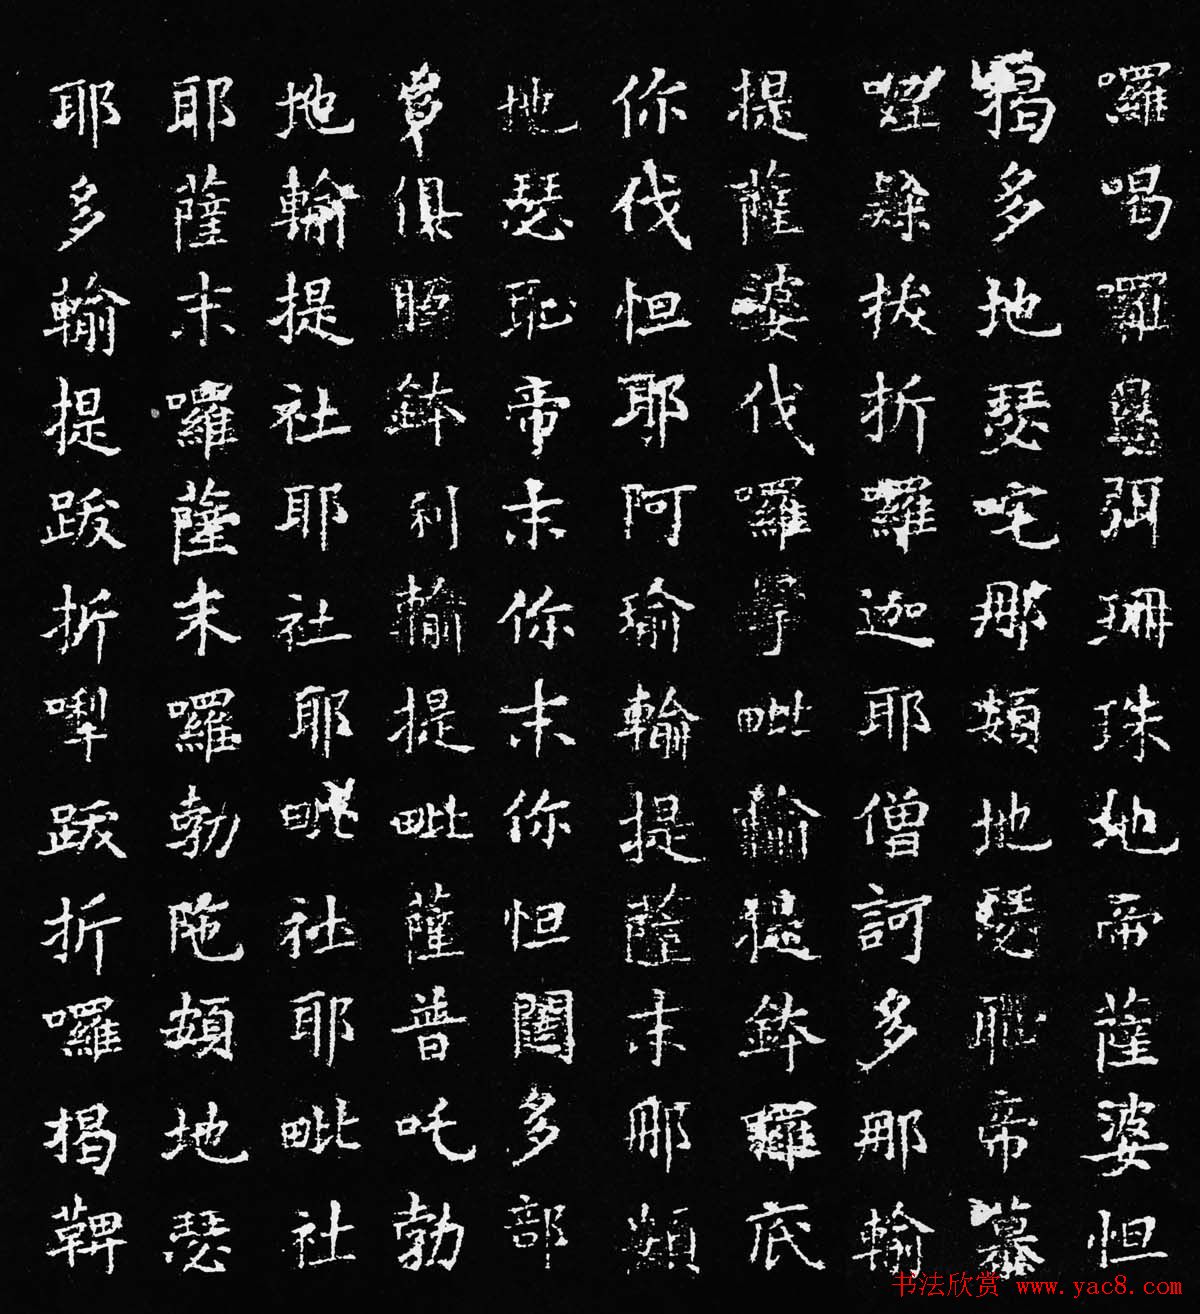 囉喝囉弭珊珠地帝薩婆怛
揭多地瑟咤那頞地瑟耻帝慕
拔折囉迦耶僧訶多那輸
提薩婆伐囉毗輸提鉢囉底
你伐怛耶阿瑜輸提薩末那頞
地瑟耻帝末你末你怛闥多部
俱胝鉢利輸提毗薩普吒勃
地輸提社耶社耶毗社耶毗社
耶薩末囉薩末囉勃陁頞地瑟
耶多輸提跋折跋折囉揭鞞
书法欣赏 www.yac8.com